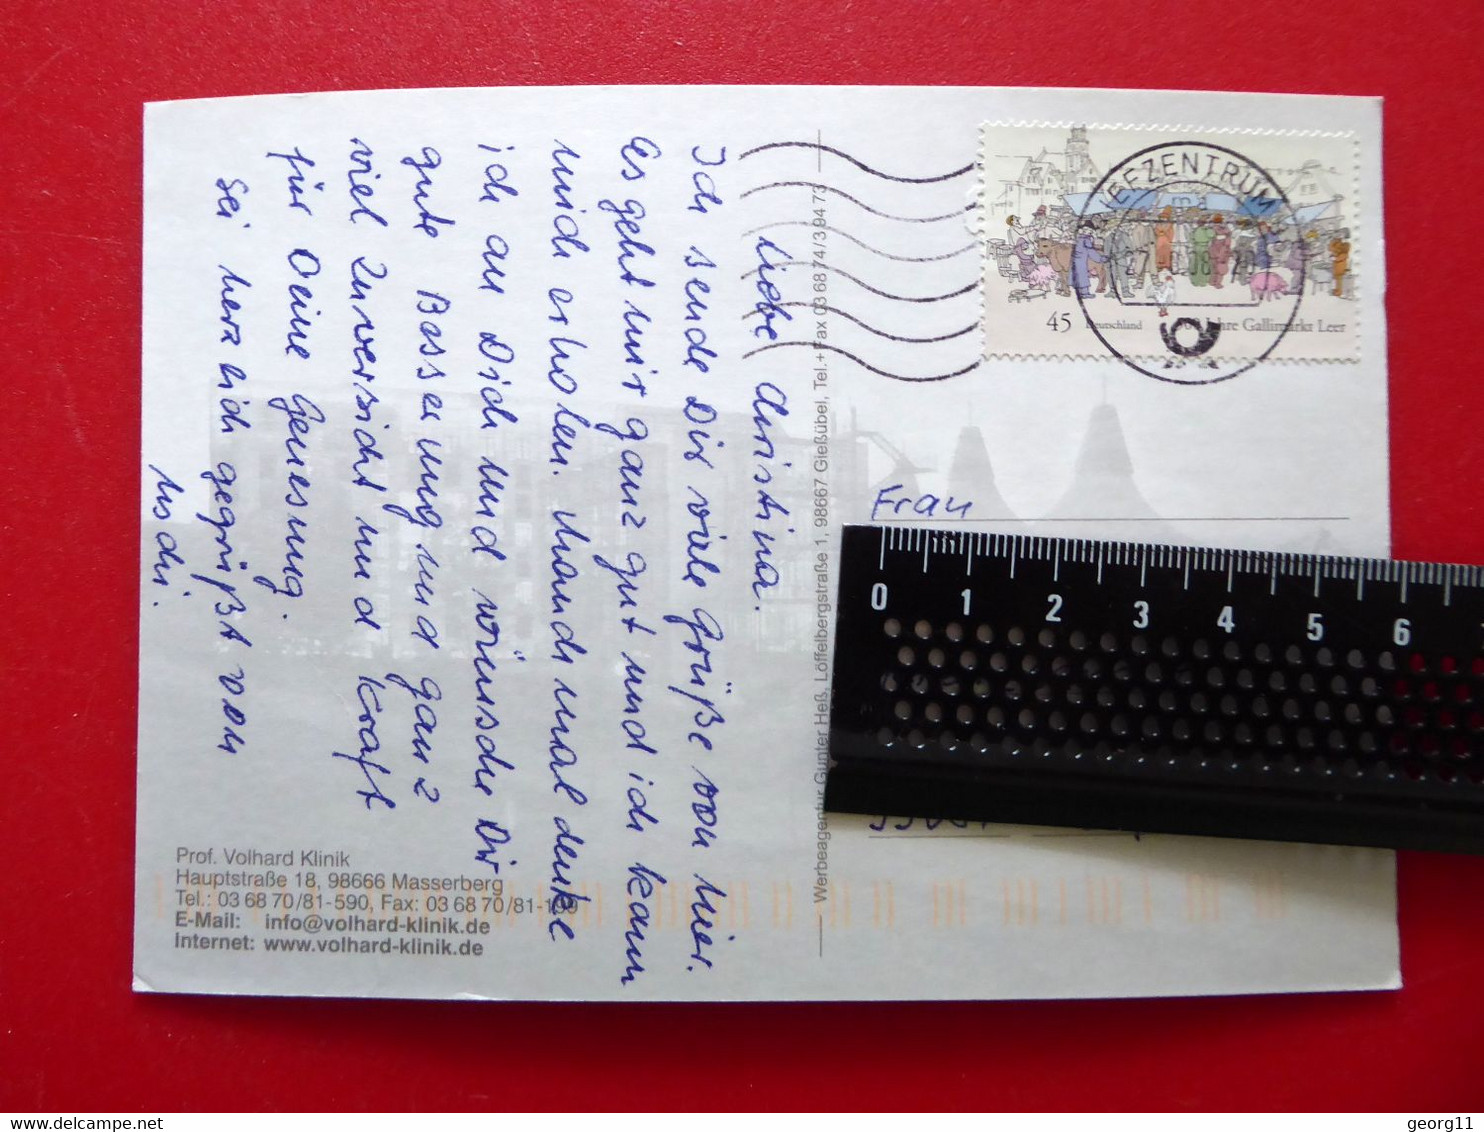 Liebe Christina.
Ich sende Dir viele Grüße von hier.
Es geht mir ganz gut und ich kann
mich erholen. Manchmal denke
ich an Dich und wünsche Dir
gute Besserung und ganz
viel Zuversicht und Kraft
für Deine Genesung.
Sei herzlich gegrüßt von
Uschi.
Prof. Volhard Klinik
Hauptstraße 18, 98666 Masserberg
Tel.: 03 68 70/81-590, Fax: 03 68 70/81-100
E-Mail: info@volhard-klinik.de
Internet: www.volhard-klinik.de
Werbeagentur Gunter Heß, Löffelbergstraße 1, 98667 Gießübel, Tel.+Fax 03 68 74/3 94 73
EFZENTRUM
27 08
45 Deutschland Jahre Gallimarkt Leer
Frau
0 1 2 3 4 5 6
delcampe.net
georg11